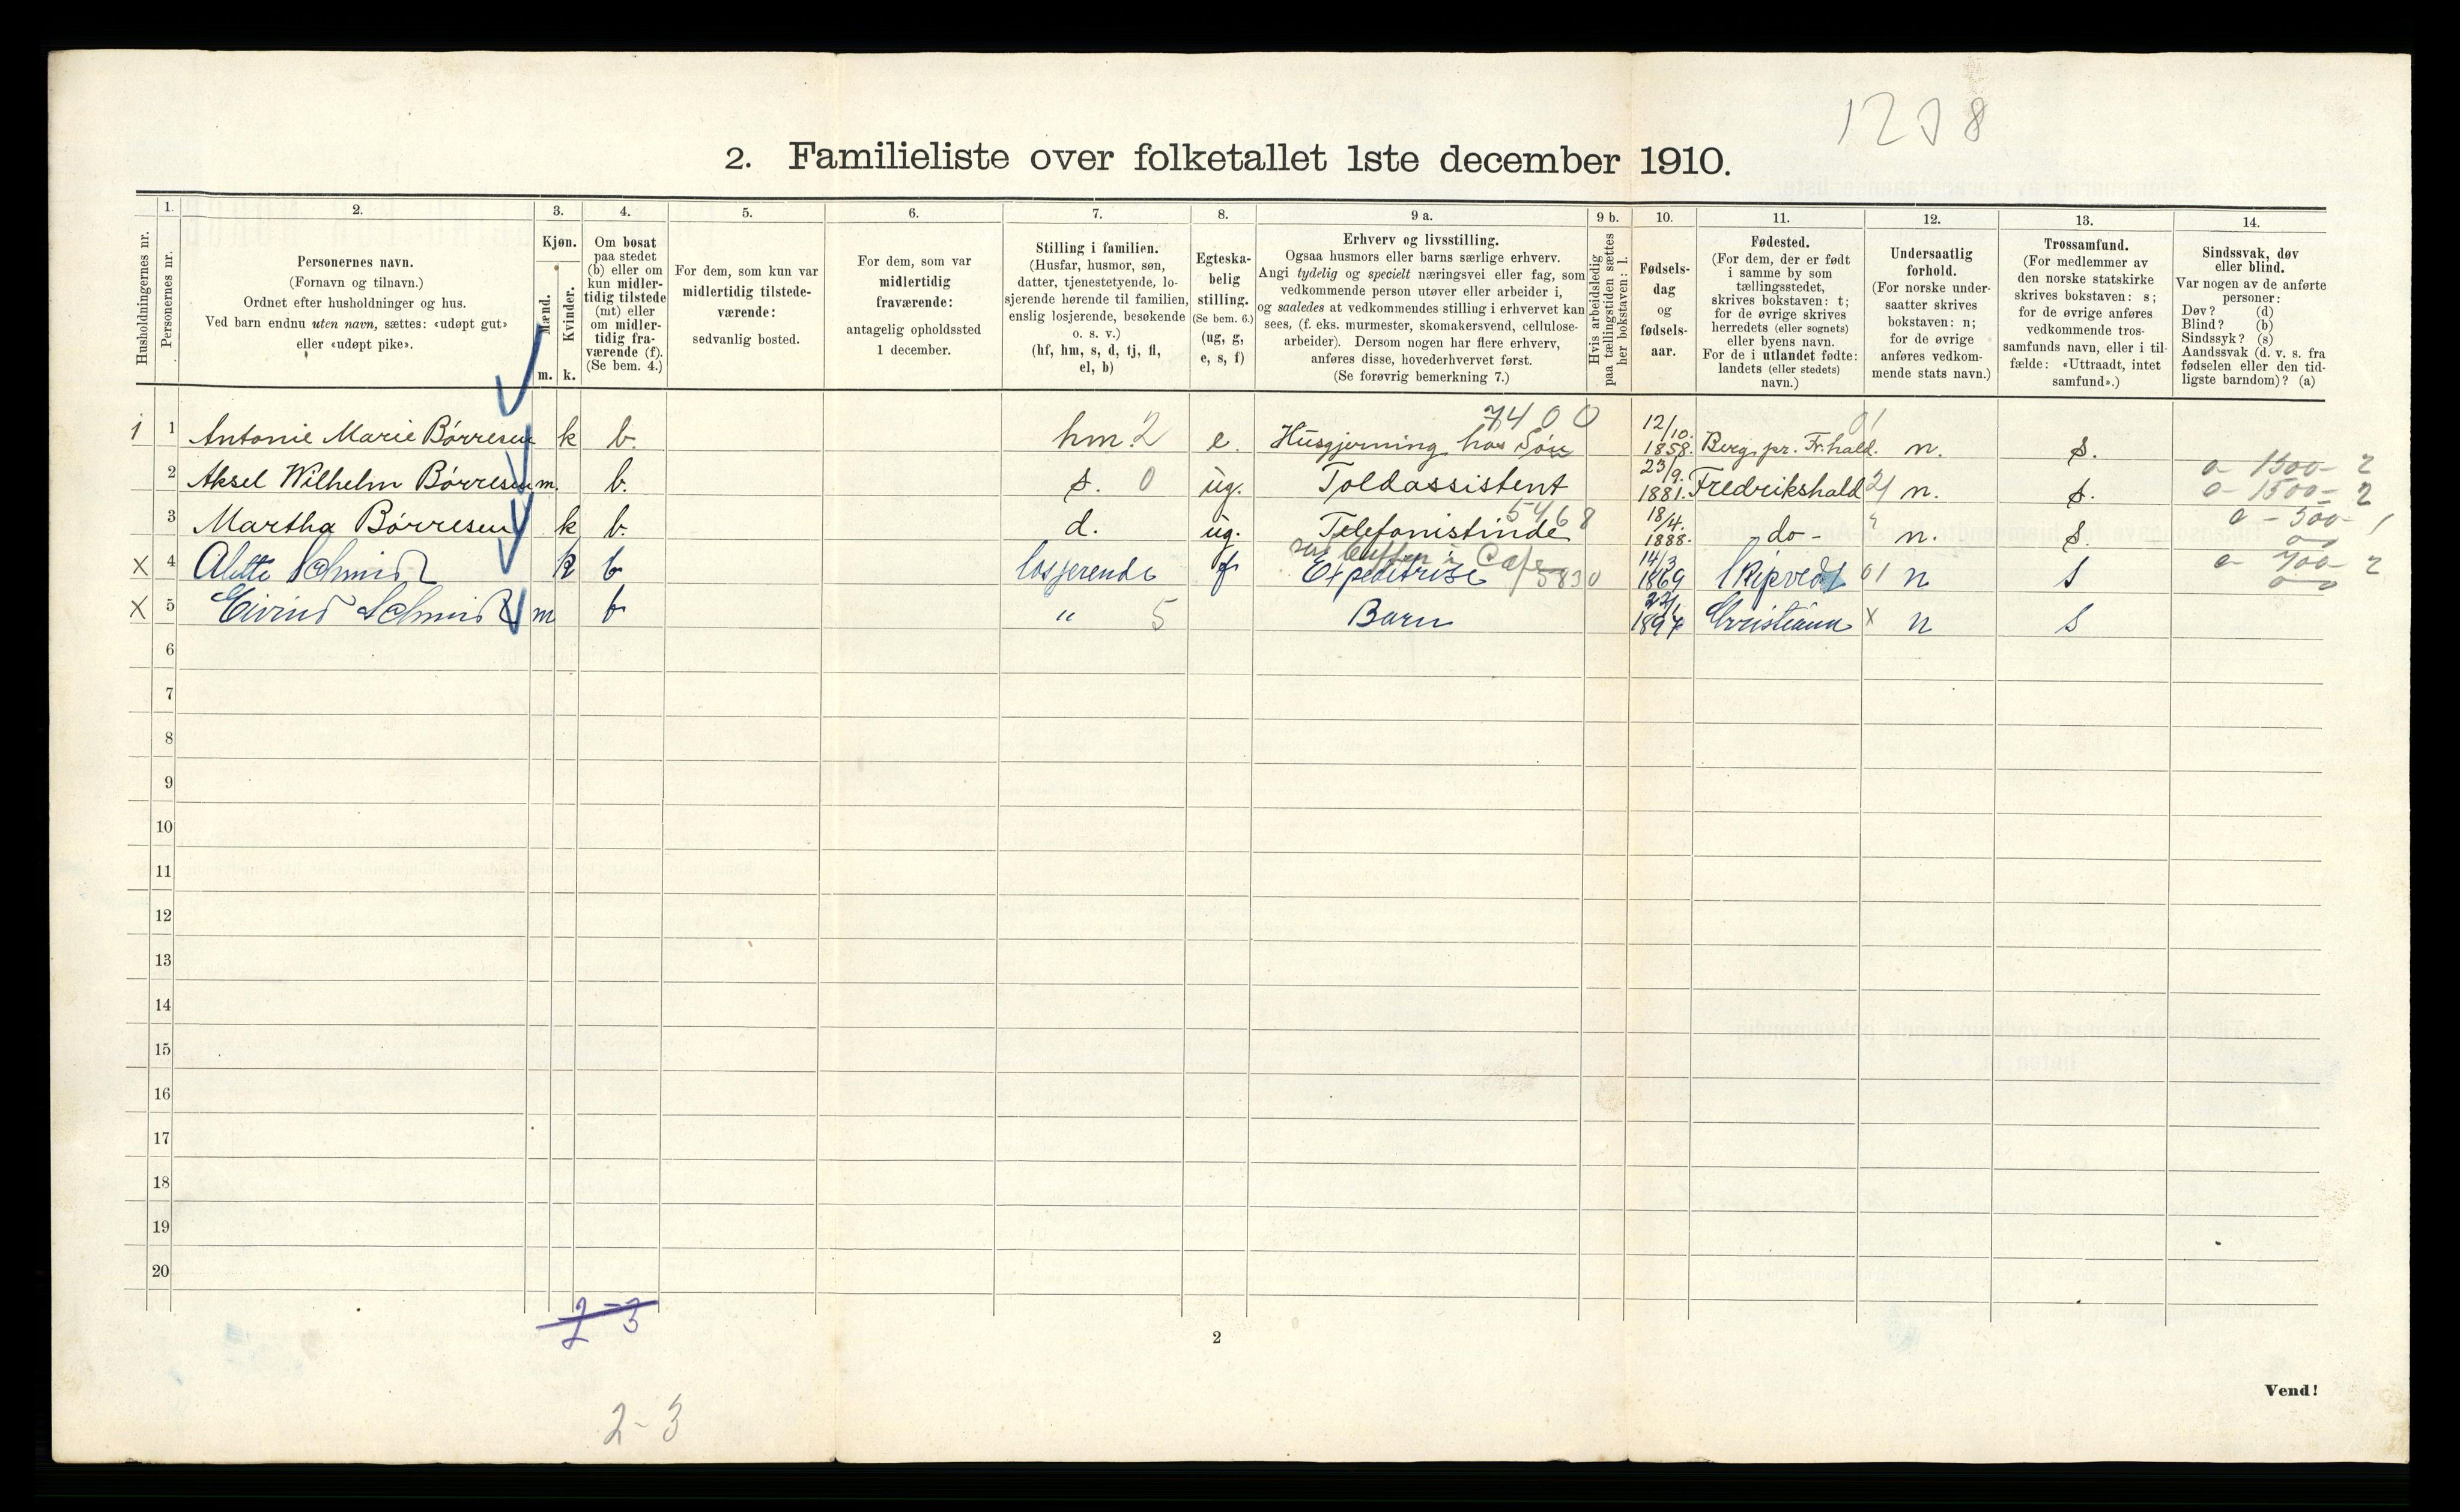 1208
2. Familieliste over folketallet 1ste december 1910.
Husholdningernes nr.
1.
Personernes nr.
2.
Personernes navn.
(Fornavn og tilnavn.)
Ordnet efter husholdninger og hus.
Ved barn endnu uten navn, sættes: «udøpt gut»
eller «udøpt pike».
3.
Kjøn.
Mænd.
Kvinder.
m. k.
4.
Om bosat
paa stedet
(b) eller om
kun midler-
tidig tilstede
(mt) eller
om midler-
tidig fra-
værende (f).
(Se bem. 4.)
5.
For dem, som kun var
midlertidig tilstede-
værende:
sedvanlig bosted.
6.
For dem, som var
midlertidig
fraværende:
antagelig opholdssted
1 december.
7.
Stilling i familien.
(Husfar, husmor, søn,
datter, tjenestetyende, lo-
sjerende hørende til familien,
enslig losjerende, besøkende
o. s. v.)
(hf, hm, s, d, tj, fl,
el, b)
8.
Egteska-
belig
stilling.
(Se bem. 6.)
(ug, g,
e, s, f)
9 a.
Erhverv og livsstilling.
Ogsaa husmors eller barns særlige erhverv.
Angi tydelig og specielt næringsvei eller fag, som
vedkommende person utøver eller arbeider i,
og saaledes at vedkommendes stilling i erhvervet kan
sees, (f. eks. murmester, skomakersvend, cellulose-
arbeider). Dersom nogen har flere erhverv,
anføres disse, hovederhvervet først.
(Se forøvrig bemerkning 7.)
9 b.
Hvis arbeidsledig
paa tællingstiden sættes
her bokstaven: l.
10.
Fødsels-
dag
og
fødsels-
aar.
11.
Fødested.
(For dem, der er født
i samme by som
tællingsstedet,
skrives bokstaven: t;
for de øvrige skrives
herredets (eller sognets)
eller byens navn.
For de i utlandet fødte:
landets (eller stedets)
navn.)
12.
Undersaatlig
forhold.
(For norske under-
saatter skrives
bokstaven: n;
for de øvrige
anføres vedkom-
mende stats navn.)
13.
Trossamfund.
(For medlemmer av
den norske statskirke
skrives bokstaven: s;
for de øvrige anføres
vedkommende tros-
samfunds navn, eller i til-
fælde: «Uttraadt, intet
samfund».)
14.
Sindssvak, døv
eller blind.
Var nogen av de anførte
personer:
Døv? (d)
Blind? (b)
Sindssyk? (s)
Aandssvak (d. v. s. fra
fødselen eller den tid-
ligste barndom)? (a)
7400
1 1 Antonie Marie Børresen k b. hm. 2 e. Husgjerning hos Søn 12/10. 1858. Berg pr. Fr.hald. 01 n. s.
2 Aksel Wilhelm Børresen m. b. s. 0 ug. Toldassistent 23/9. 1881. Fredrikshald 21 n. s. 0- 1500- 2
0- 1500- 2
3 Martha Børresen k b. d. ug. Telefonistinde 5468 18/4. 1888. - do - n. s. 0 - 500- 1
Café
X 4 Alette Schmidt k b losjerende f Expeditrise 5830 14/3 1869 Skipvedt 01 n s 0- 700- 2
X 5 Eivind Schmidt m b " 5 Barn 22/1 1897 Christiania X n s
6
7
8
9
10
11
12
13
14
15
16
17
18
19
20
2-3
2
Vend!
2-3